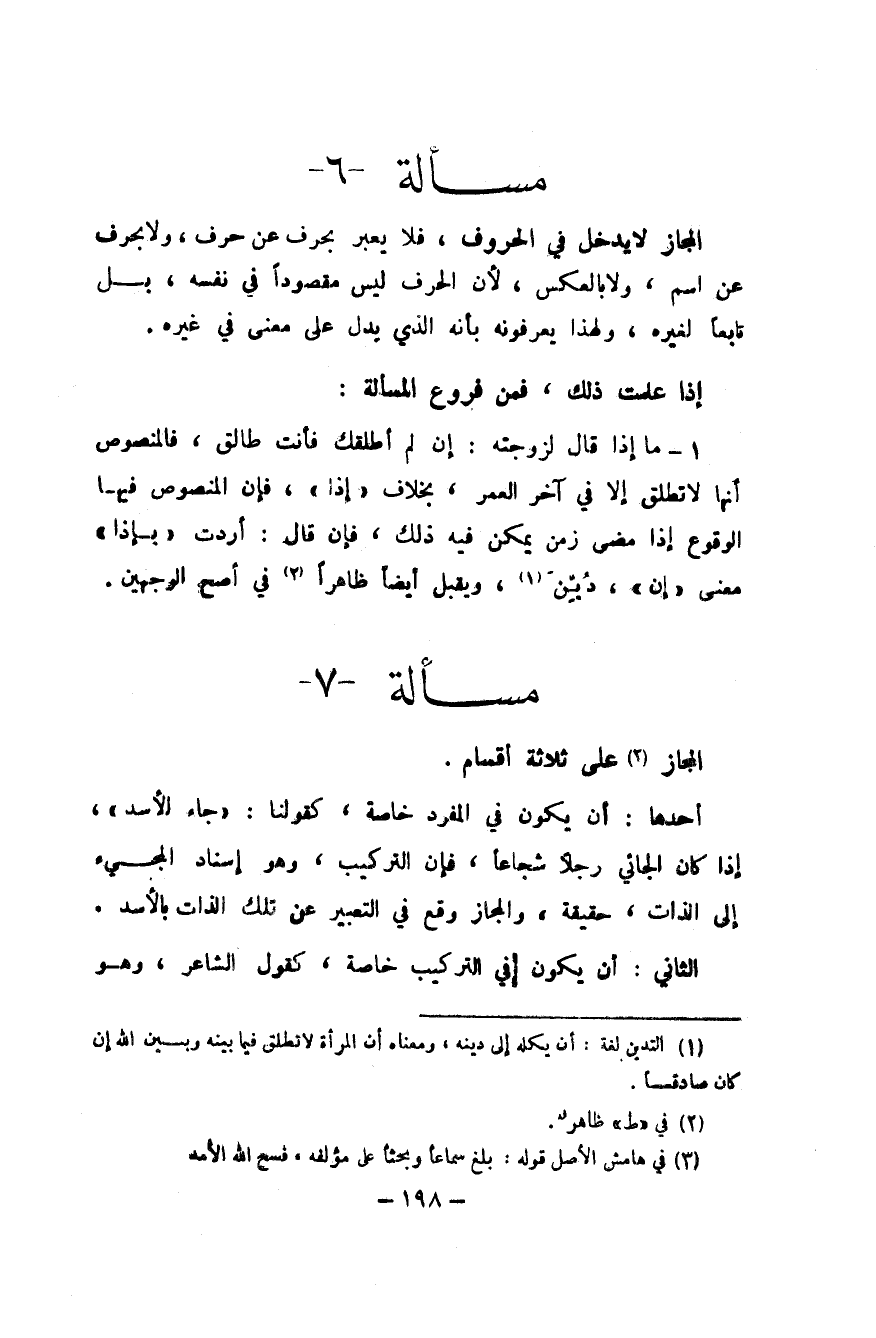 مسألة -٦-
المجاز لايدخل في الحروف ، فلا يعبر بحرف عن حرف ، ولابحرف
عن اسم ، ولابالعكس ، لأن الحرف ليس مقصوداً في نفسه ، بل
تابعاً لغيره ، ولهذا يعرفونه بأنه الذي يدل على معنى في غيره .
إذا علمت ذلك ، فمن فروع المسألة :
١ - ما إذا قال لزوجته : إن لم أطلقك فأنت طالق ، فالمنصوص
أنها لاتطلق إلا في آخر العمر ، بخلاف «إذا» ، فإن المنصوص فيها
الوقوع إذا مضى زمن يمكن فيه ذلك ، فإن قال : أردت «بإذا»
معنى «إن» ، دُيِّنَ (١) ، ويقبل أيضاً ظاهراً (٢) في أصح الوجهين .
مسألة -٧-
المجاز (٣) على ثلاثة أقسام .
أحدها : أن يكون في المفرد خاصة ، كقولنا : «جاء الأسد» ،
إذا كان الجائي رجلاً شجاعاً ، فإن التركيب ، وهو إسناد المجيء
إلى الذات ، حقيقة ، والمجاز وقع في التعبير عن تلك الذات بالأسد .
الثاني : أن يكون [في التركيب خاصة ، كقول الشاعر ، وهو
(١) التدين لغة : أن يكله إلى دينه ، ومعناه أن المرأة لاتطلق فيما بينه وبين الله إن
كان صادقاً .
(٢) في «ط» ظاهر .
(٣) في هامش الأصل قوله : بلغ سماعاً وبحثاً على مؤلفه ، فسح الله الأمد
- ١٩٨ -